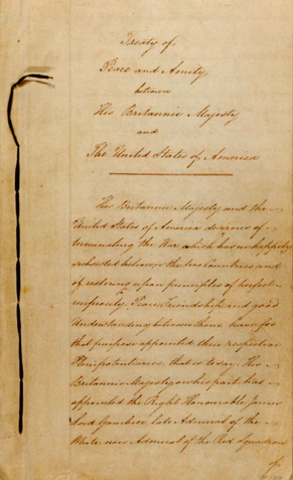 Treaty of
Peace and Amity
between
His Britannic Majesty
and
The United States of America
His Britannic Majesty and the
United States of America desirous of
terminating the War which has unhappily
subsisted between the two Countries and
of restoring upon principles of perfect
reciprocity, Peace, Friendship, and good
Understanding between them, have for
that purpose appointed their respective
Plenipotentiaries, that is to say, His
Britannic Majesty on his part, has
appointed the Right Honourable James
Lord Gambier, late Admiral of the
White now Admiral of the Red Squadron
of